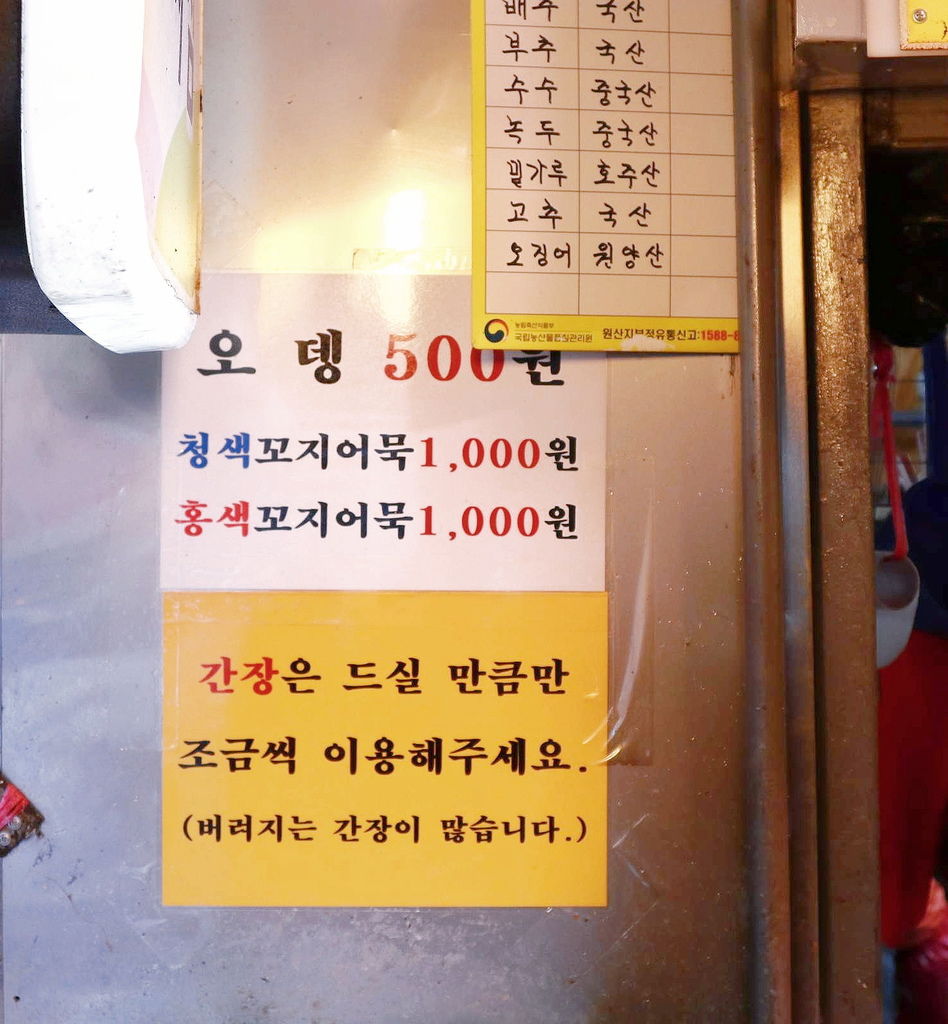 배추 국산
부추 국산
수수 중국산
녹두 중국산
밀가루 호주산
고추 국산
오징어 원양산
농림축산식품부
국립농산물품질관리원 원산지부정유통신고:1588-8
오 뎅 500원
청색꼬지어묵1,000원
홍색꼬지어묵1,000원
간장은 드실 만큼만
조금씩 이용해주세요.
(버려지는 간장이 많습니다.)